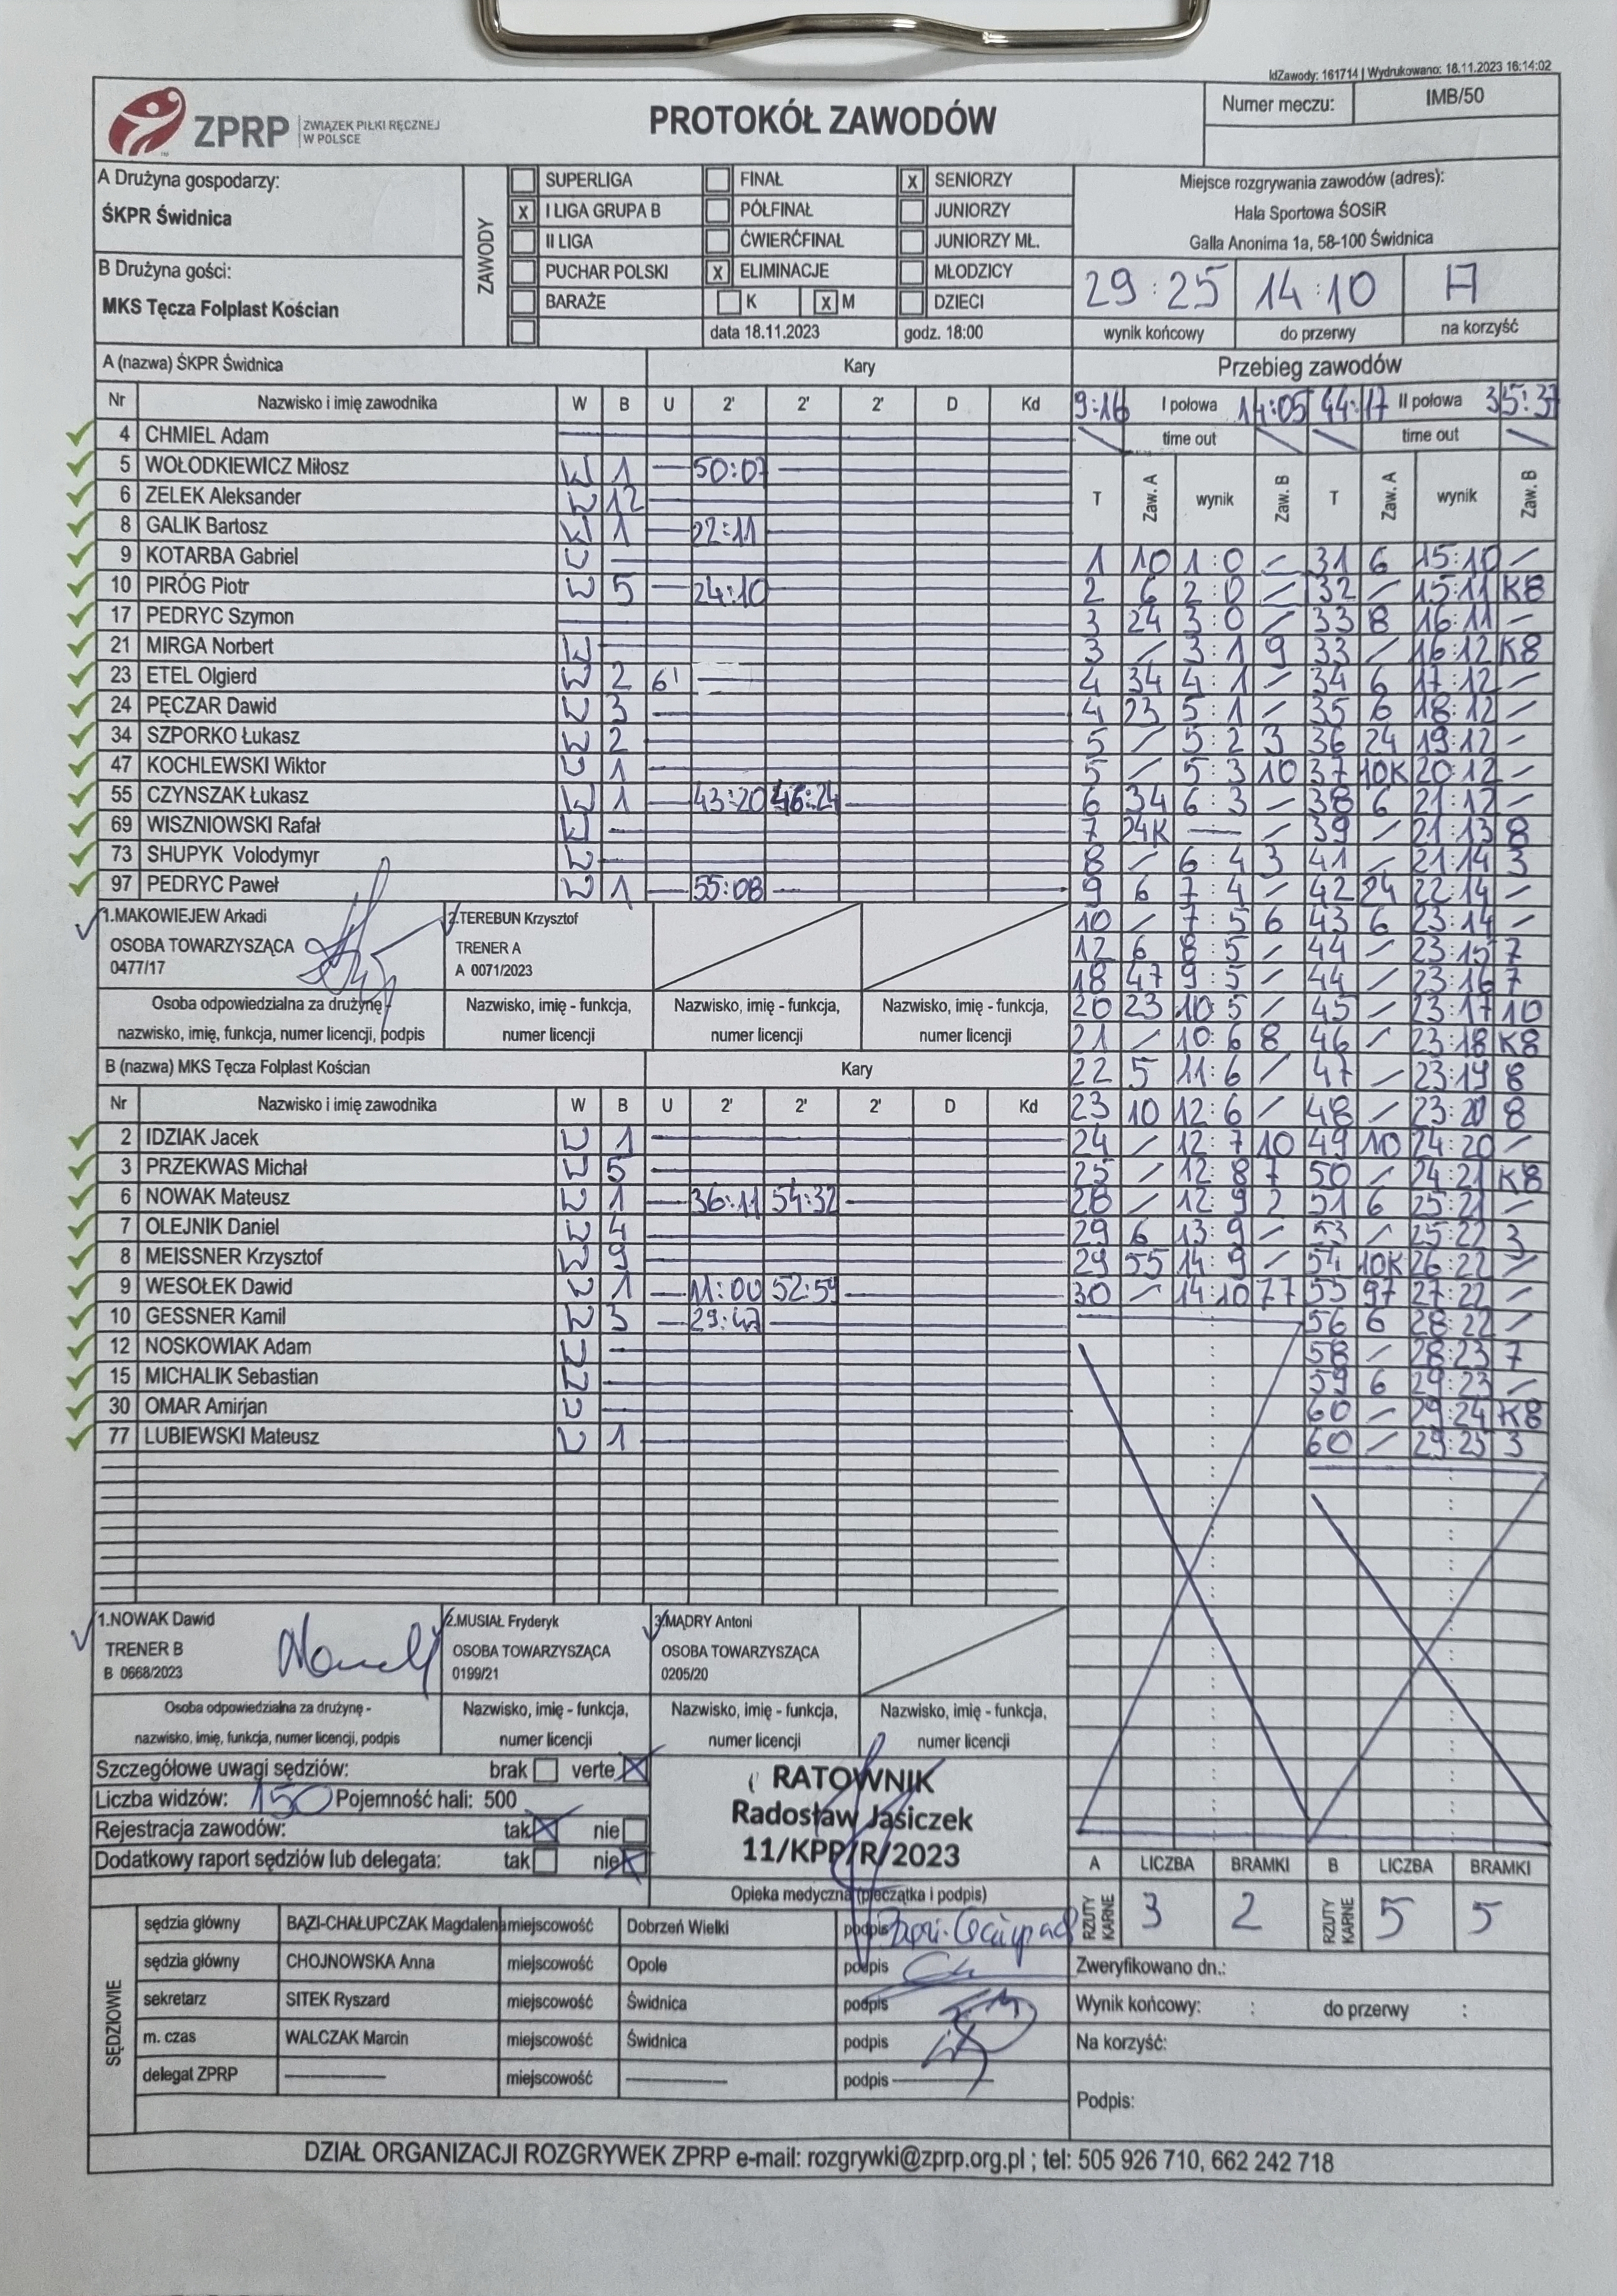 IdZawody: 161714 | Wydrukowano: 18.11.2023 16:14:02
ZPRP ZWIĄZEK PIŁKI RĘCZNEJ W POLSCE
PROTOKÓŁ ZAWODÓW
Numer meczu: IMB/50
A Drużyna gospodarzy:
ŚKPR Świdnica
B Drużyna gości:
MKS Tęcza Folplast Kościan
ZAWODY
SUPERLIGA FINAŁ X SENIORZY
X I LIGA GRUPA B PÓŁFINAŁ JUNIORZY
II LIGA ĆWIERĆFINAŁ JUNIORZY MŁ.
PUCHAR POLSKI X ELIMINACJE MŁODZICY
BARAŻE K X M DZIECI
data 18.11.2023 godz. 18:00
Miejsce rozgrywania zawodów (adres):
Hala Sportowa ŚOSiR
Galla Anonima 1a, 58-100 Świdnica
29:25 14:10 A
wynik końcowy do przerwy na korzyść
A (nazwa) ŚKPR Świdnica Kary
Nr Nazwisko i imię zawodnika W B U 2' 2' 2' D Kd
4 CHMIEL Adam
5 WOŁODKIEWICZ Miłosz W 1 50:07
6 ZELEK Aleksander W 12
8 GALIK Bartosz W 1 22:11
9 KOTARBA Gabriel W
10 PIRÓG Piotr W 5 24:10
17 PEDRYC Szymon
21 MIRGA Norbert W
23 ETEL Olgierd W 2 6'
24 PĘCZAR Dawid W 3
34 SZPORKO Łukasz W 2
47 KOCHLEWSKI Wiktor W 1
55 CZYNSZAK Łukasz W 1 43:20 46:24
69 WISZNIOWSKI Rafał W
73 SHUPYK Volodymyr W
97 PEDRYC Paweł W 1 55:08
1.MAKOWIEJEW Arkadi
OSOBA TOWARZYSZĄCA
0477/17
2.TEREBUN Krzysztof
TRENER A
A 0071/2023
Osoba odpowiedzialna za drużynę -
nazwisko, imię, funkcja, numer licencji, podpis
Nazwisko, imię - funkcja,
numer licencji
Nazwisko, imię - funkcja,
numer licencji
Nazwisko, imię - funkcja,
numer licencji
B (nazwa) MKS Tęcza Folplast Kościan Kary
Nr Nazwisko i imię zawodnika W B U 2' 2' 2' D Kd
2 IDZIAK Jacek W 1
3 PRZEKWAS Michał W 5
6 NOWAK Mateusz W 1 36:11 54:32
7 OLEJNIK Daniel W 4
8 MEISSNER Krzysztof W 9
9 WESOŁEK Dawid W 1 11:00 52:59
10 GESSNER Kamil W 3 29:47
12 NOSKOWIAK Adam W
15 MICHALIK Sebastian W
30 OMAR Amirjan W
77 LUBIEWSKI Mateusz W 1
1.NOWAK Dawid
TRENER B
B 0668/2023
2.MUSIAŁ Fryderyk
OSOBA TOWARZYSZĄCA
0199/21
3.MĄDRY Antoni
OSOBA TOWARZYSZĄCA
0205/20
Osoba odpowiedzialna za drużynę -
nazwisko, imię, funkcja, numer licencji, podpis
Nazwisko, imię - funkcja,
numer licencji
Nazwisko, imię - funkcja,
numer licencji
Nazwisko, imię - funkcja,
numer licencji
Przebieg zawodów
9:16 I połowa 14:05 44:17 II połowa 35:37
time out time out
T Zaw. A wynik Zaw. B T Zaw. A wynik Zaw. B
1 10 1:0 – 31 6 15:10 –
2 6 2:0 – 32 – 15:11 K8
3 24 3:0 – 33 8 16:11 –
3 – 3:1 9 33 – 16:12 K8
4 34 4:1 – 34 6 17:12 –
4 23 5:1 – 35 6 18:12 –
5 – 5:2 3 36 24 19:12 –
5 – 5:3 10 37 10K 20:12 –
6 34 6:3 – 38 6 21:12 –
7 24K – – 39 – 21:13 8
8 – 6:4 3 41 – 21:14 3
9 6 7:4 – 42 24 22:14 –
10 – 7:5 6 43 6 23:14 –
12 6 8:5 – 44 – 23:15 7
18 47 9:5 – 44 – 23:16 7
20 23 10:5 – 45 – 23:17 10
21 – 10:6 8 46 – 23:18 K8
22 5 11:6 – 47 – 23:19 8
23 10 12:6 – 48 – 23:20 8
24 – 12:7 10 49 10 24:20 –
25 – 12:8 7 50 – 24:21 K8
28 – 12:9 2 51 6 25:21 –
29 6 13:9 – 53 – 25:22 3
29 55 14:9 – 54 10K 26:22 –
30 – 14:10 77 55 97 27:22 –
56 6 28:22 –
58 – 28:23 7
59 6 29:23 –
60 – 29:24 K8
60 – 29:25 3
Szczegółowe uwagi sędziów: brak verte X
Liczba widzów: 150 Pojemność hali: 500
Rejestracja zawodów: tak X nie
Dodatkowy raport sędziów lub delegata: tak nie X
RATOWNIK
Radosław Jasiczek
11/KPP/R/2023
Opieka medyczna (pieczątka i podpis)
A LICZBA BRAMKI B LICZBA BRAMKI
RZUTY KARNE 3 2 RZUTY KARNE 5 5
SĘDZIOWIE
sędzia główny BĄZI-CHAŁUPCZAK Magdalena miejscowość Dobrzeń Wielki podpis
sędzia główny CHOJNOWSKA Anna miejscowość Opole podpis
sekretarz SITEK Ryszard miejscowość Świdnica podpis
m. czas WALCZAK Marcin miejscowość Świdnica podpis
delegat ZPRP miejscowość podpis
Zweryfikowano dn.:
Wynik końcowy: : do przerwy :
Na korzyść:
Podpis:
DZIAŁ ORGANIZACJI ROZGRYWEK ZPRP e-mail: rozgrywki@zprp.org.pl ; tel: 505 926 710, 662 242 718